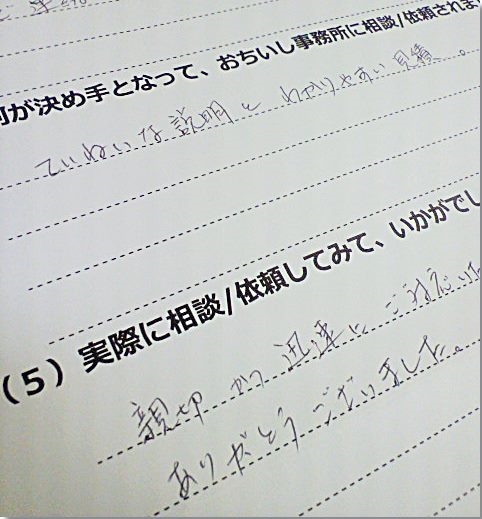 何が決め手となって、おちいし事務所に相談/依頼されま
ていねいな説明と わかりやすい見積。
(5)実際に相談/依頼してみて、いかがでし
親切かつ迅速にご対応いた
ありがとうございました。